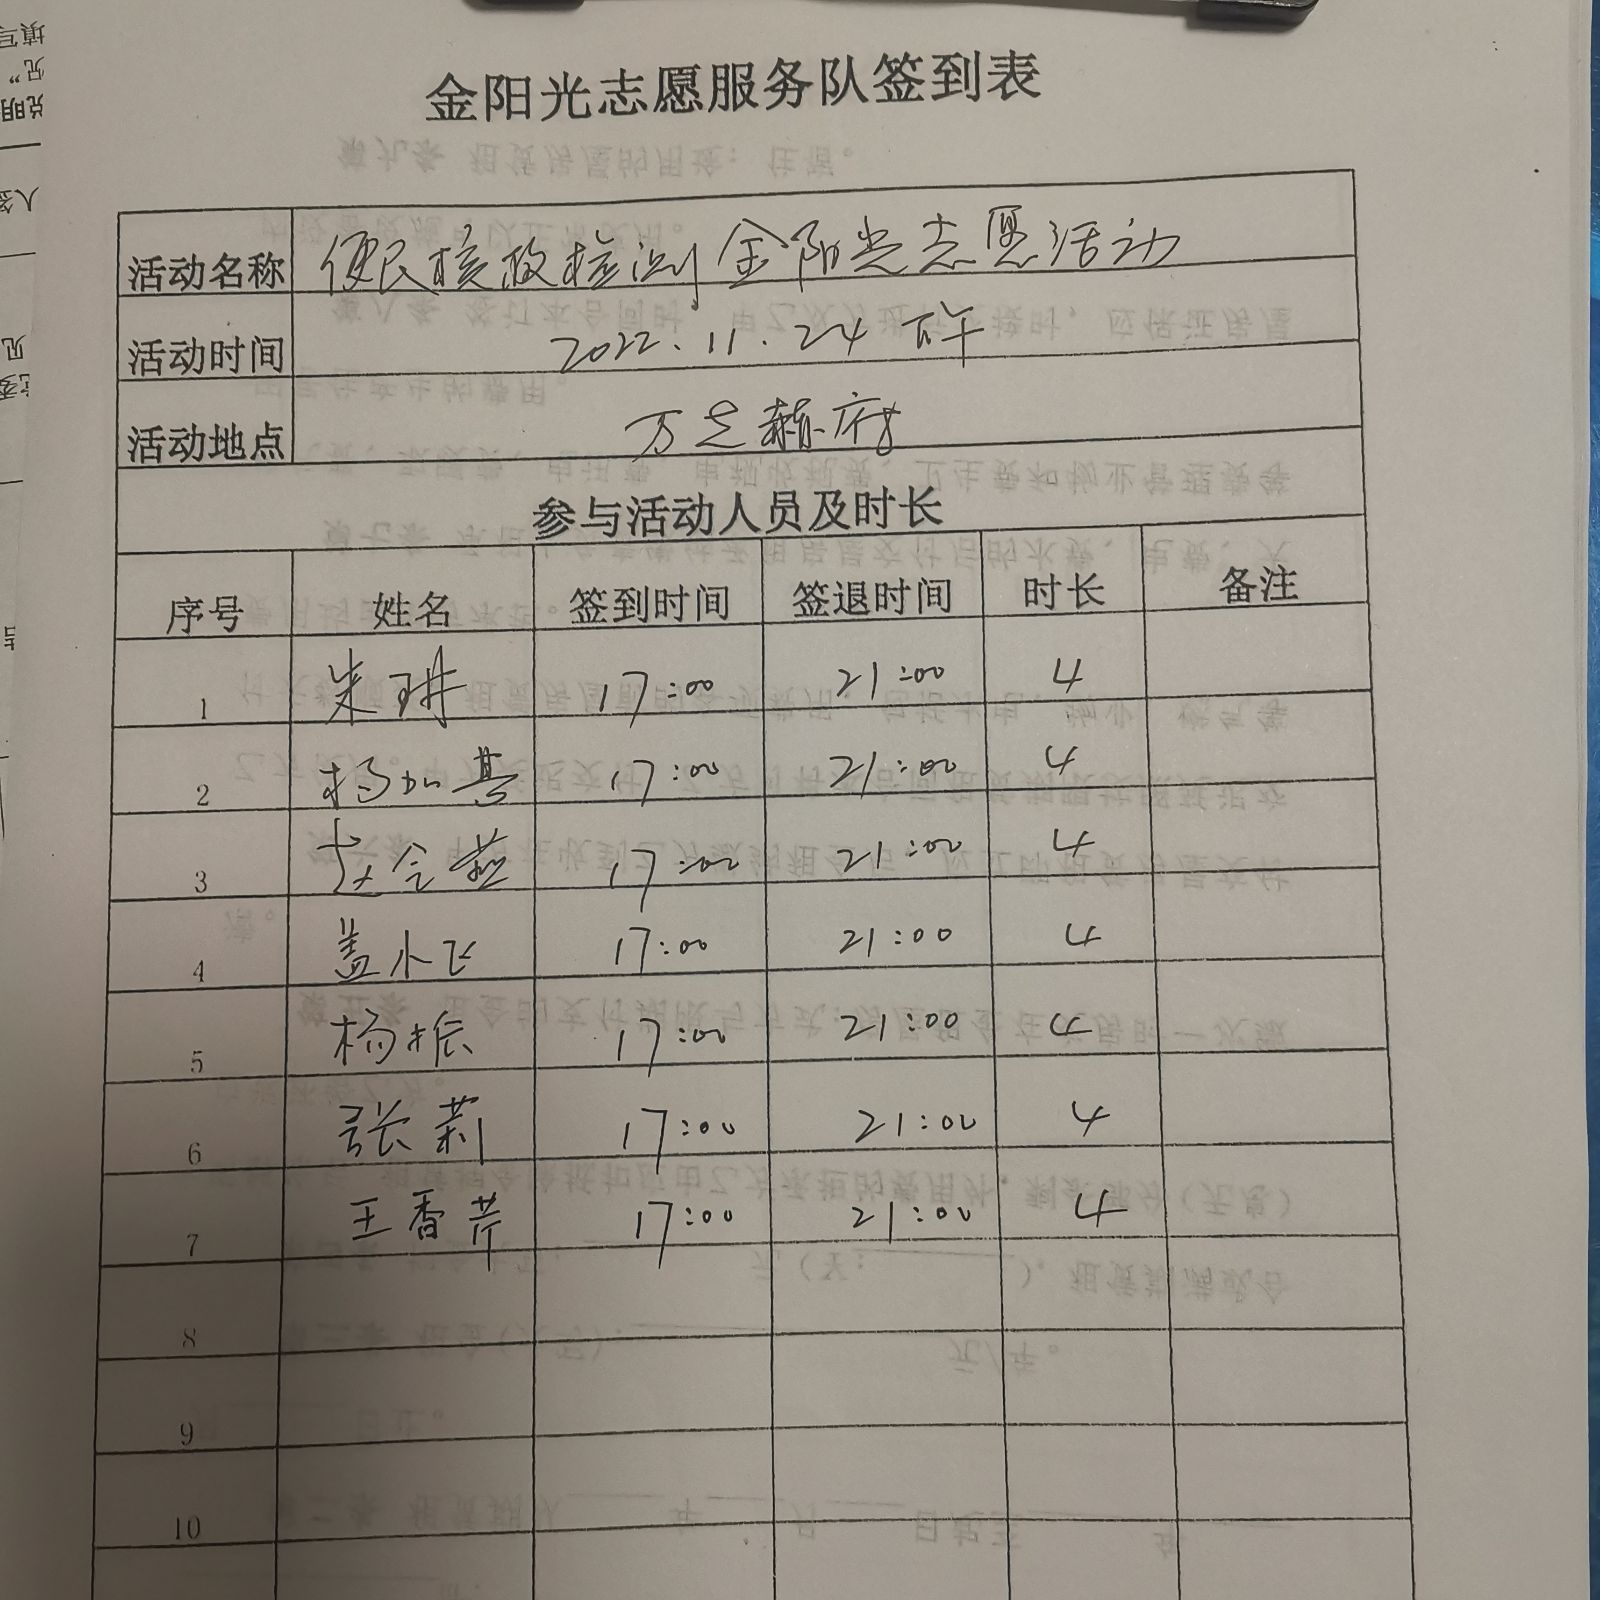 金阳光志愿服务队签到表
活动名称 便民核酸检测金阳光志愿活动
活动时间 2022.11.24 下午
活动地点 万芝赫府
参与活动人员及时长
序号 姓名 签到时间 签退时间 时长 备注
1 朱琳 17:00 21:00 4
2 杨加慧 17:00 21:00 4
3 赵会燕 17:00 21:00 4
4 盖小飞 17:00 21:00 4
5 杨振 17:00 21:00 4
6 张莉 17:00 21:00 4
7 王香芹 17:00 21:00 4
8
9
10